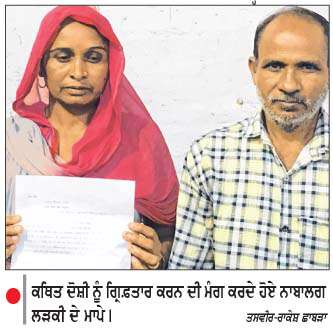 ਕਥਿਤ ਦੋਸ਼ੀ ਨੂੰ ਗ੍ਰਿਫ਼ਤਾਰ ਕਰਨ ਦੀ ਮੰਗ ਕਰਦੇ ਹੋਏ ਨਾਬਾਲਗ
ਲੜਕੀ ਦੇ ਮਾਪੇ।
ਤਸਵੀਰ-ਰਾਕੇਸ਼ ਛਾਬੜਾ